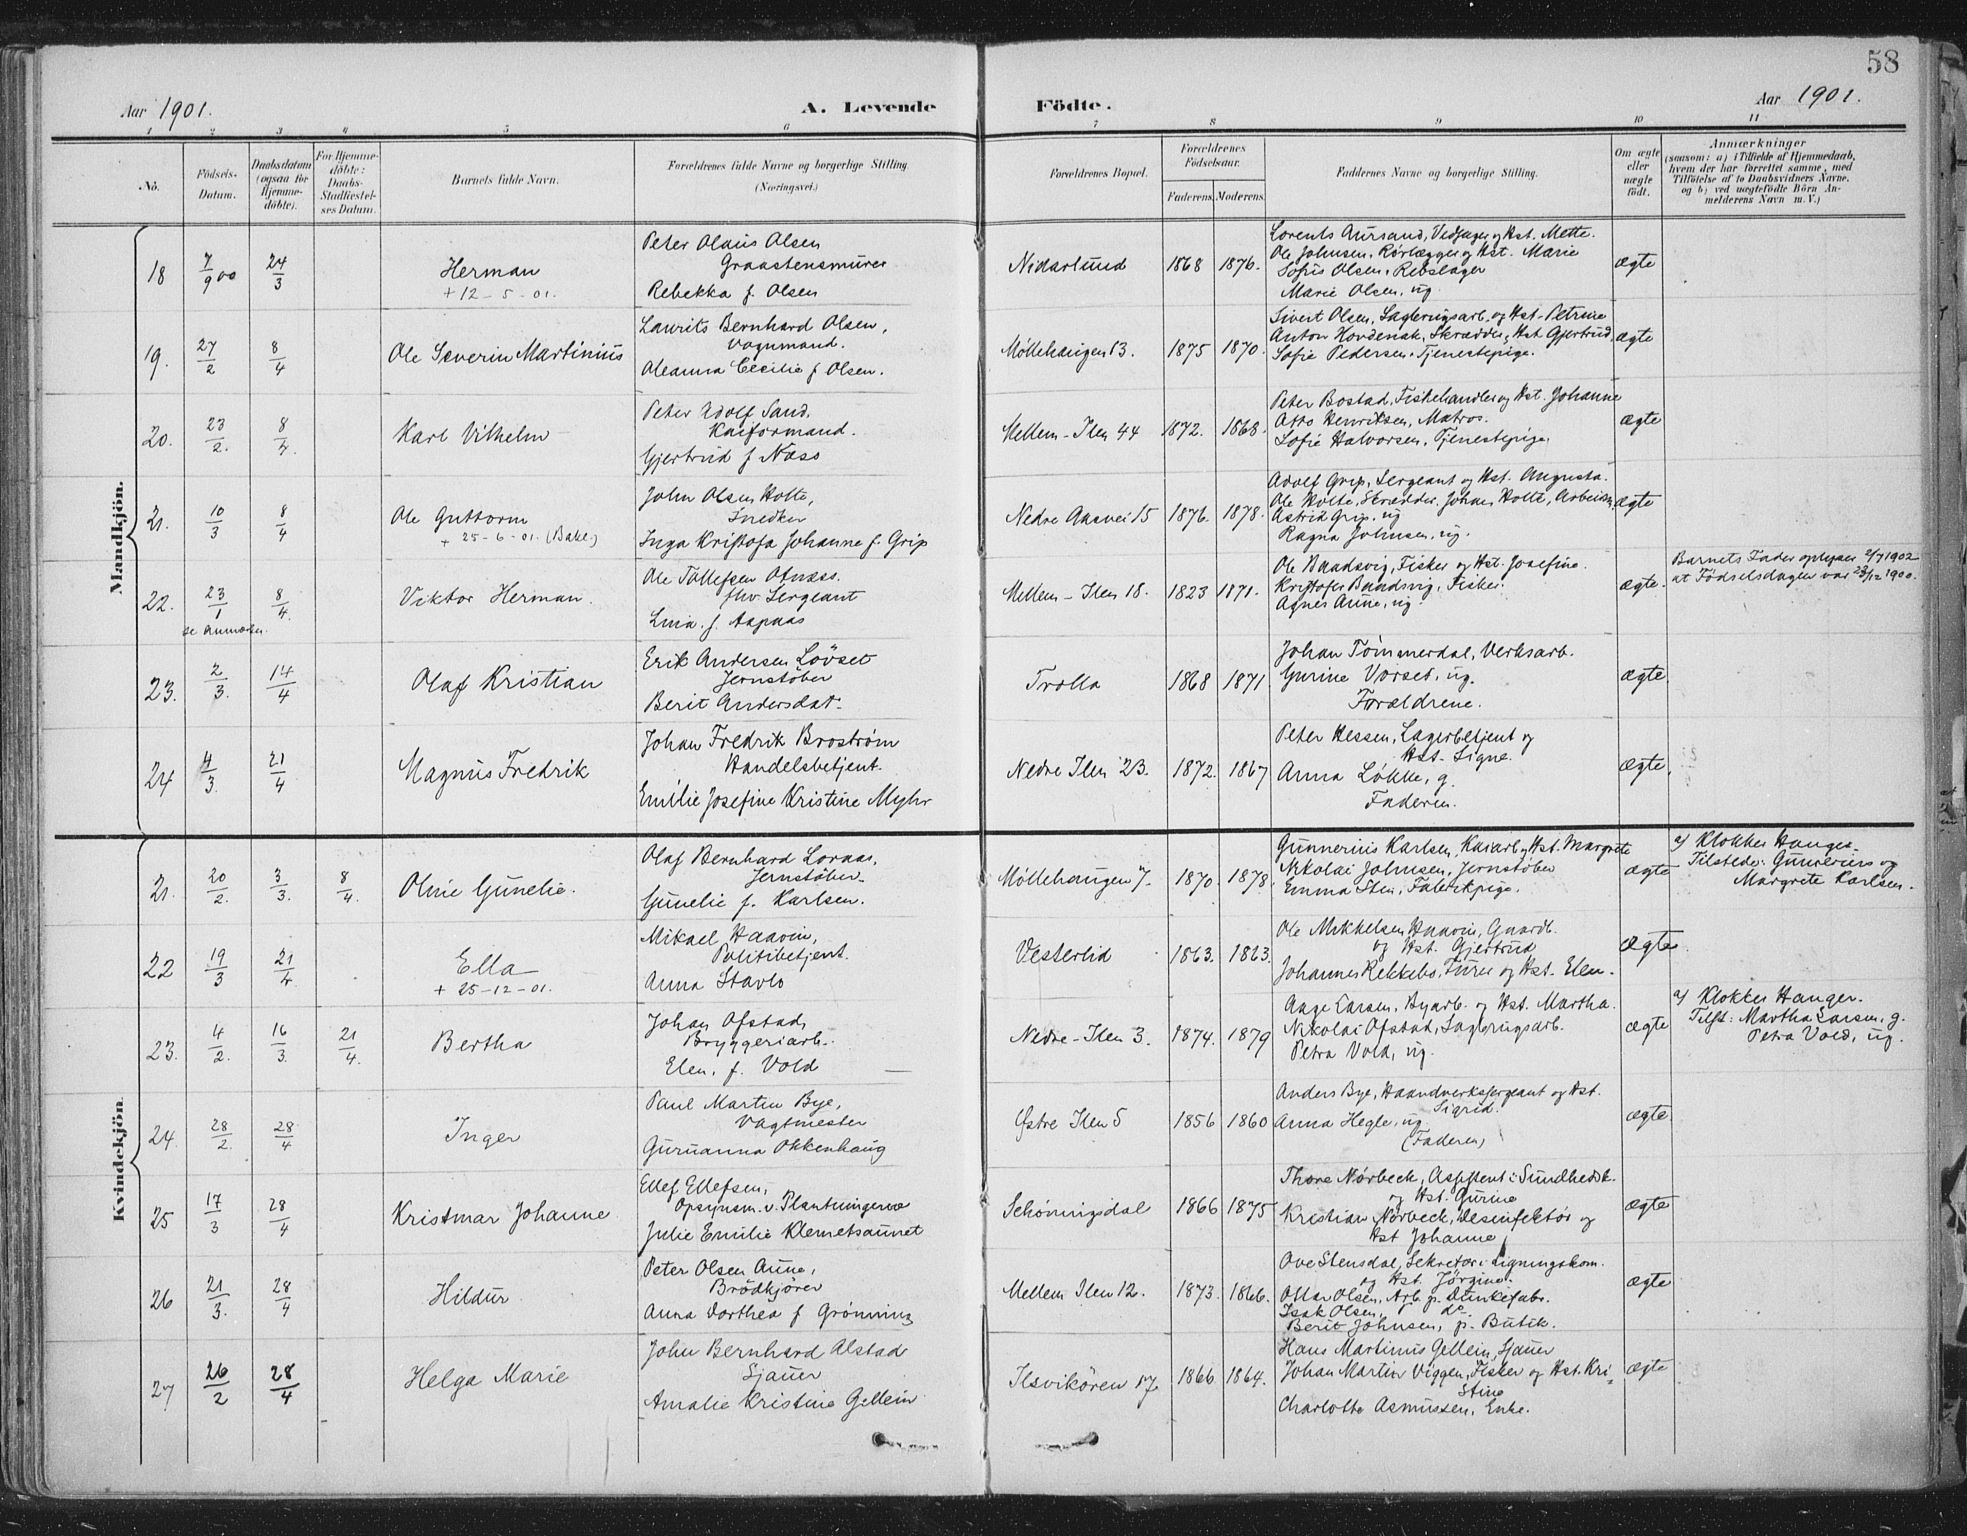 58
Aar 1901.
A. Levende Födte.
Aar 1901.
1 2 3 4 5 6 7 8 9 10 11
No.
Födsels-
Datum.
Daabsdatum
(ogsaa for
Hjemme-
döbte).
For Hjemme-
döbte:
Daabs-
Stadfæstel-
ses Datum.
Barnets fulde Navn.
Forældrenes fulde Navne og borgerlige Stilling
(Næringsvei.)
Forældrenes Bopæl.
Forældrenes
Födselsaar.
Faderens. Moderens.
Faddernes Navne og borgerlige Stilling.
Om ægte
eller
uægte
födt.
Anmærkninger
(saasom: a) i Tilfælde af Hjemmedaab,
hvem der har forrettet samme, med
Tilföielse af to Daabsvidners Navne,
og b) ved uægtefödte Börn An-
melderens Navn m. V.)
Mandkjön.
18 7/9 00 24/3
Herman
+ 12-5-01.
Peter Olaus Olsen
Graastensmurer
Rebekka f. Olsen
Nidarlund 1868 1876.
Lorents Aursand, Vedsager og Hst. Mette.
Ole Johnsen, Rørlægger og Hst. Marie
Sofus Olsen, Rebslager
Marie Olsen, ug.
ægte
19. 27/2 8/4
Ole Severin Martinius
Laurits Bernhard Olsen,
Vognmand.
Oleanna Cecilie f Olsen.
Møllehaugen 13. 1875 1870.
Sivert Olsen, Sagbrugsarb. og Hst. Petrine
Anton Hovdenak, Skrædder, Hst. Gjertrud,
Sofie Pedersen, Tjenestepige.
ægte
20. 23/2. 8/4.
Karl Vilhelm
Peter Adolf Sand,
Kaiformand.
Gjertrud f Næss
Mellem-Ilen 44 1872. 1868.
Peter Bostad, Fiskehandler og Hst. Johanne
Otto Henriksen, Matros.
Sofie Halvorsen, Tjenestepige.
ægte
21. 10/3 8/4
Ole Guttorm
+ 25-6-01. (Bakl.)
John Olsen Holte,
Snedker
Inga Kristofa Johanne f. Grip
Nedre Aasvei 15 1876. 1878.
Adolf Grip, Sergeant og Hst. Augusta.
Ole Holte, Skrædder. Johan Holte, Arbeider,
Astrid Grip, ug
Ragna Johnsen, ug.
ægte
22. 23/1 8/4.
se Anmærkn.
Viktor Herman.
Ole Tollefsen Ofnæss.
fhv. Sergeant
Lina f. Aspaas
Mellem-Ilen 18. 1823 1871.
Ole Baadsvig, Fisker og Hst. Josefine.
Kristofer Baadsvig, Fisker.
Agnes Aune, ug.
ægte.
Barnets Fader oplyser 2/7 1902
at Fødselsdagen var 23/12 1900.
23. 2/3. 14/4
Olaf Kristian
Erik Andersen Løvset
Jernstøber
Berit Andersdat.
Trolla 1868 1871
Johan Tømmerdal, Verksarb.
Gurine Vorset, ug.
Forældrene.
ægte.
24 4/3. 21/4
Magnus Fredrik
Johan Fredrik Broström
Handelsbetjent.
Emilie Josefine Kristine Myhr
Nedre Ilen 23. 1872. 1867
Peter Hessen, Lagerbetjent og
Hst. Signe.
Anna Løkke, g.
Faderen.
ægte.
Kvindekjön.
21. 20/2. 3/3. 8/4.
Oline Gunelie.
Olaf Bernhard Loraas,
Jernstøber.
Gunelie f. Karlsen.
Møllehaugen 7. 1870. 1878.
Gunnerius Karlsen, Kaiarb. og Hst. Margrete
Nikolai Johnsen, Jernstøber
Emma Sten, Fabrikpige.
ægte
a) Klokker Hauger.
Tilstede: Gunnerius og
Margrete Karlsen.
22 19/3 21/4.
Ella
+ 25-12-01.
Mikael Haavin,
Politibetjent.
Anna Stavlo
Vesterlid 1863. 1863.
Ole Mikkelsen Haavin, Gaardb.
og Hst. Gjertrud
Johannes Rekkebo, Furer og Hst. Elen.
ægte.
23. 4/2. 16/3 21/4.
Bertha
Johan Ofstad,
Bryggeriarb.
Elen, f. Vold
Nedre-Ilen 3. 1874. 1879
Aage Larsen, Byarb. og Hst. Martha.
Nikolai Ofstad, Sagbrugsarb.
Petra Vold, ug.
ægte
a) Klokker Hauger.
Tilst: Martha Larsen, g.
Petra Vold, ug.
24. 28/2. 28/4
Inger
Paul Martin Bye,
Vagtmester
Guruanna Okkenhaug
Østre Ilen 5 1856 1860
Anders Bye, Haandverkssergeant og Hst.
Sigrid.
Anna Hegle, ug.
(Faderen)
ægte.
25 17/3 28/4
Kristmar Johanne.
Ellef Ellefsen,
Opsynsm. v. Plantningerne
Julie Emilie Klemetsaunet
Schønningsdal 1866 1875
Thore Nørbeck, Assistent i Sundhedsk.
og Hst. Gurine
Kristian Nørbeck, Desinfektör og
Hst Johanne
ægte
26 21/3. 28/4
Hildur
Peter Olsen Aune,
Brödkjörer
Anna Dorthea f Grønning
Mellem Ilen 12. 1873. 1866.
Ove Stensdal, Sekretær i Ligningskom.
og Hst. Jörgine.
Ottar Olsen, Arb. p. Tønkefabr.
Isak Olsen, do.
Berit Johnsen, p. Butik.
ægte
27 26/2 28/4
Helga Marie
John Bernhard Alstad
Sjauer
Amalie Kristine Gellein
Ilsvikören 17. 1866. 1864.
Hans Martinus Gellein, Sjauer
Johan Martin Viggen, Fisker og Hst. Kri-
stine
Charlotte Asmussen, Enke.
ægte